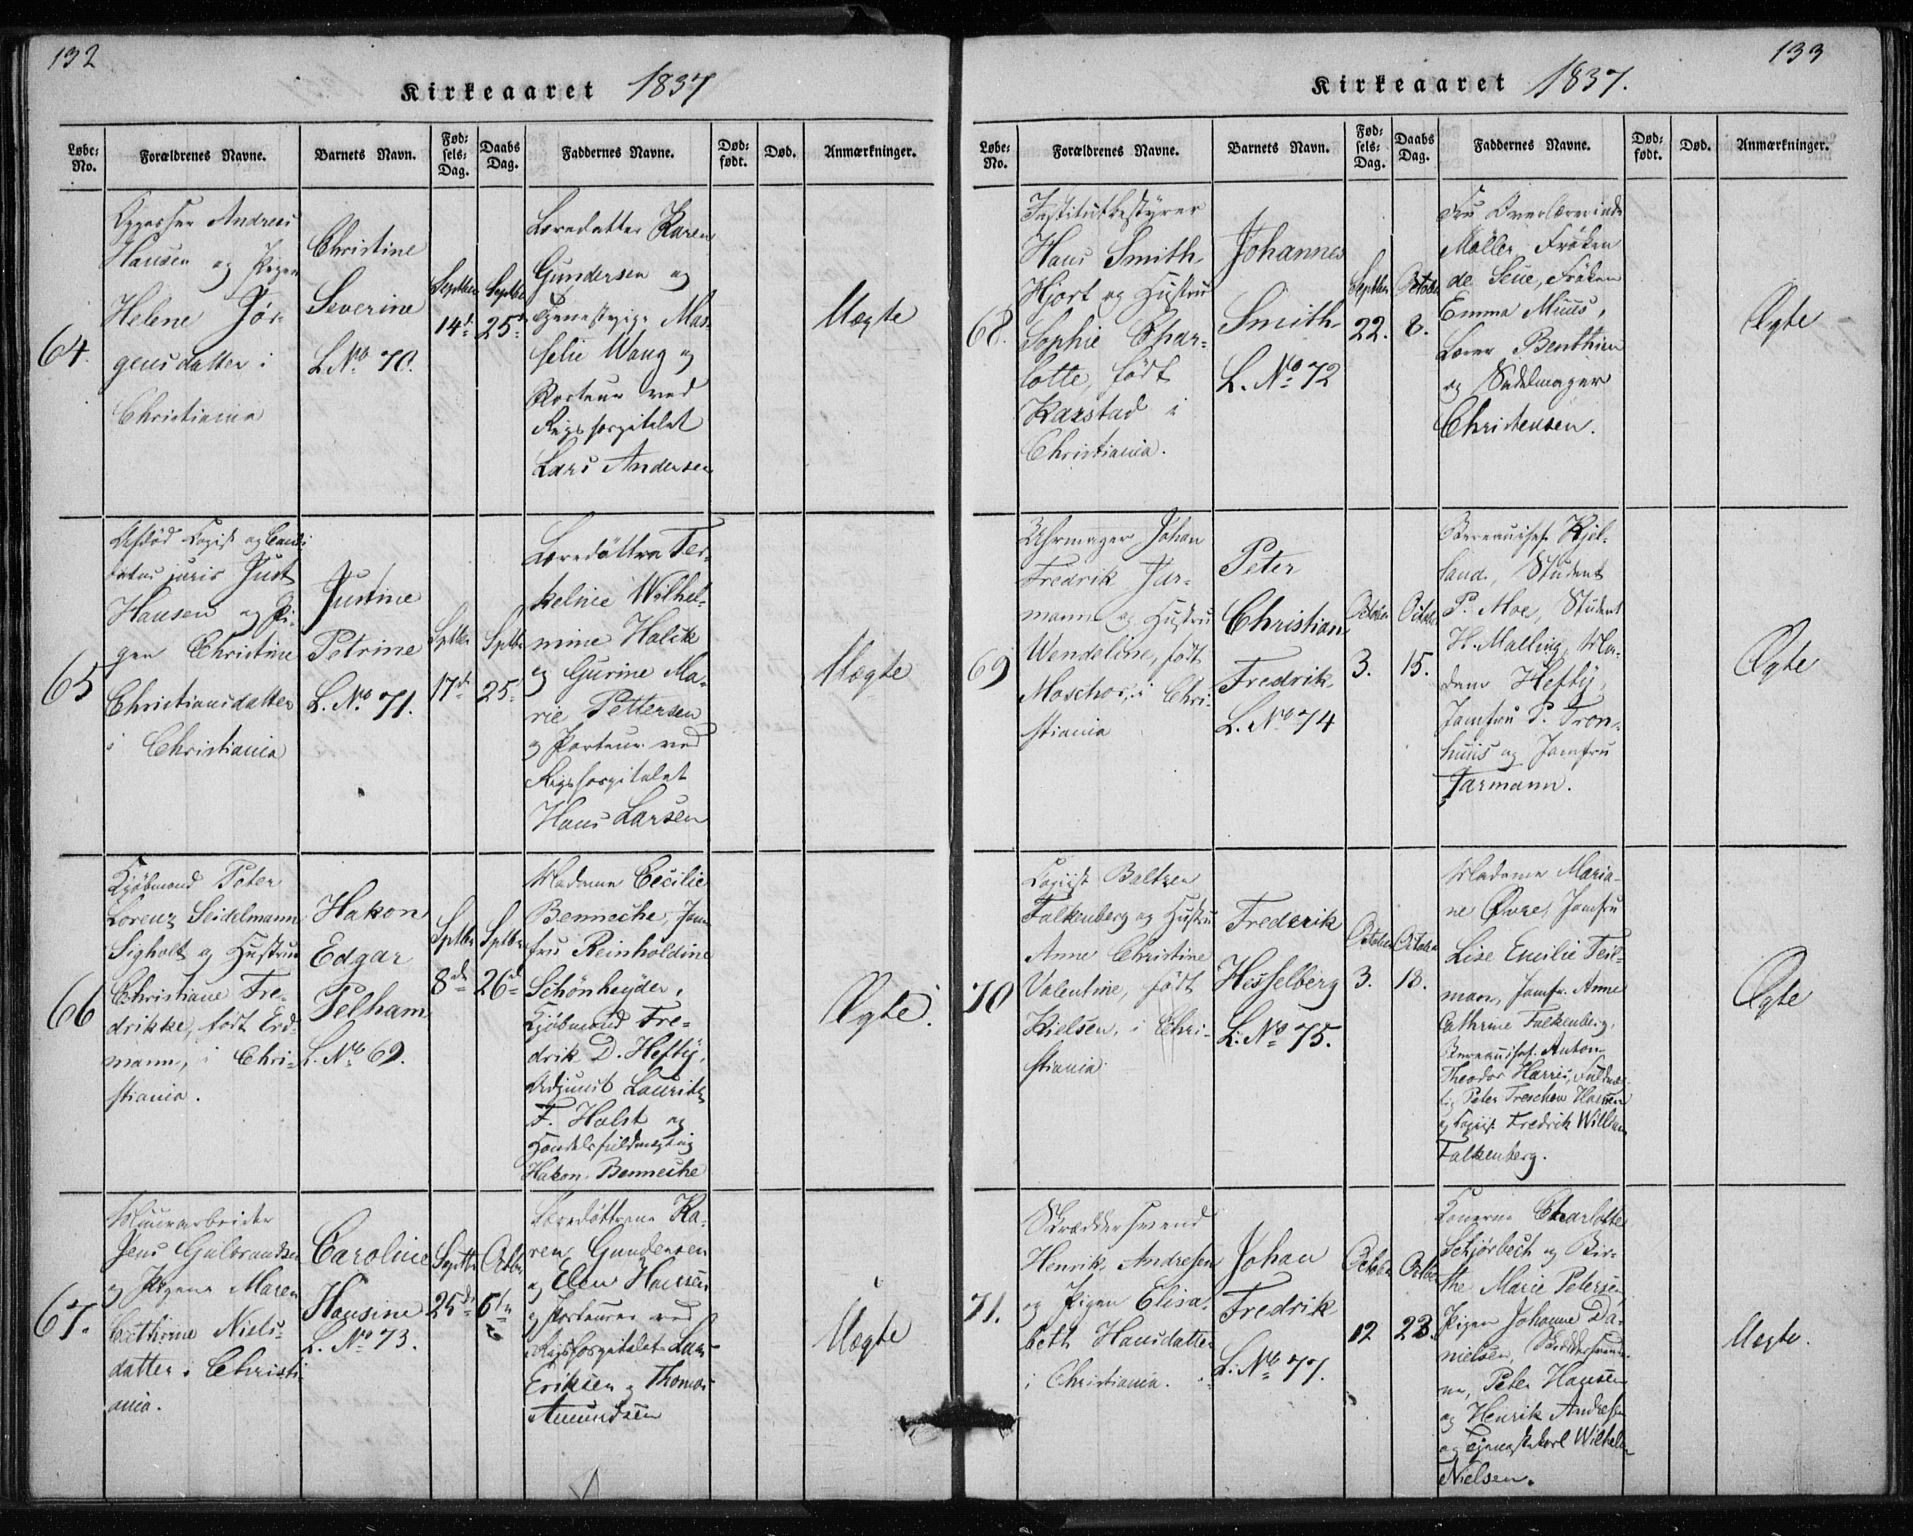 132
Kirkeaaret 1837
Løbe-No.
Forældrenes Navne.
Barnets Navn.
Fødsels-Dag.
Daabs Dag.
Faddernes Navne.
Dødfødt.
Død.
Anmærkninger.
64.
Andreas
Hansen og Pigen
Helene Jør-
gensdatter i
Christiania
Christine
Severine
L. No. 70.
Septber
14d
Septbr
25d
Karen
Gundersen og
Tjenestepige Mar-
Wang og
Porteur ved
Rigshospitalet
Lars Andersen
Uægte
65
Afdød Copist og Candi-
datus juris Just
Hansen og Pi-
gen Christine
Christiansdatter
i Christiania
Justine
Petrine
L. No. 71.
Sptbr
17d
Sptbr
25d
Ter-
keline Wilhel-
mine Holck
og Gurine Ma-
rie Pettersen
og Porteur ved
Rigshospitalet
Hans Larsen
Uægte
66
Kjøbmand Peter
Lorenz Seidelmann
Sigholt og Hustrue
Christiane Fre-
drikke, født Erd-
mann, i Chri-
stiania.
Hakon
Edgar
Pelham
L. No. 69.
Sptbr
8de
Sptbr
26d
Madame Cecilie
Benneche, Jom-
fru Reinholdine
Schönheyder,
Kjøbmand Fre-
drik D. Heftÿ,
Adjunct Lauritz
F. Holst og
Handelsfuldmægtig
Hakon Benneche
Ægte.
67.
Muurarbeider
Jens Gulbrandsen
og Pigen Maren
Cathrine Niels-
datter i Christi-
ania.
Caroline
Hansine
L. No. 73.
Septbr
25de
Octbr
6te
Ka-
ren Gundersen
og Elen Hansen
og Porteurer ved
Rigshospitalet Lars
Eriksen og Thomas
Amundsen
Uægte
133
Kirkeaaret 1837.
Løbe-No.
Forældrenes Navne.
Barnets Navn.
Fødsels-Dag.
Daabs Dag.
Faddernes Navne.
Dødfødt.
Død.
Anmærkninger.
68.
Institutbestyrer
Hans Smith
Hjort og Hustru
Sophie Char-
lotte, født
Karstad i
Christiania.
Johannes
Smith
L. No. 72
Septber
22.
October
8.
Fru Overlærerinde
Møller, Frøken
de Seue, Frøken
Emma Muus,
Lærer Benthien
og Sadelmager
Christensen.
Ægte
69
Uhrmager Johan
Fredrik Jar-
mann og Hustru
Wendeline, født
Moschor, i Chri-
stiania
Peter
Christian
Fredrik
L. No. 74
October
3.
October
15.
Bureauchef Kjel-
land, Student
P. Moe, Student
H. Malling, Ma-
dame Heftÿ,
Jomfru P. Tron-
huus og Jomfru
Jarmann.
Ægte
70
Copiist Baltzer
Falkenberg og Hustru
Anne Christine
Valentine, født
Nielsen, i Chri-
stiania
Frederik
Hesselberg
L. No. 75.
October
3.
October
18.
Madame Maria-
ne Øvre, Jomfru
Lise Emilie Teil-
man, Jomfr. Anne
Cathrine Falkenberg,
Bureauchef Anton
Theodor Harris, Fuldmæg-
tig Peter Treschow Hansen
og Copist Fredrik Willum
Falkenberg.
Ægte
71.
Skræddersvend
Henrik Andresen
og Pigen Elisa-
beth Hansdatter
i Christiania.
Johan
Fredrik
L. No. 77.
October
12
Octbr
22.
Konerne Charlotte
Schjørbech og Bir-
the Marie Petersen,
Pigen Johanne Da-
nielsen, Skræddersvende-
ne, Peter Hansen
og Henrik Andresen
og Tjenestekarl Wilhelm
Nielsen.
Uægte.